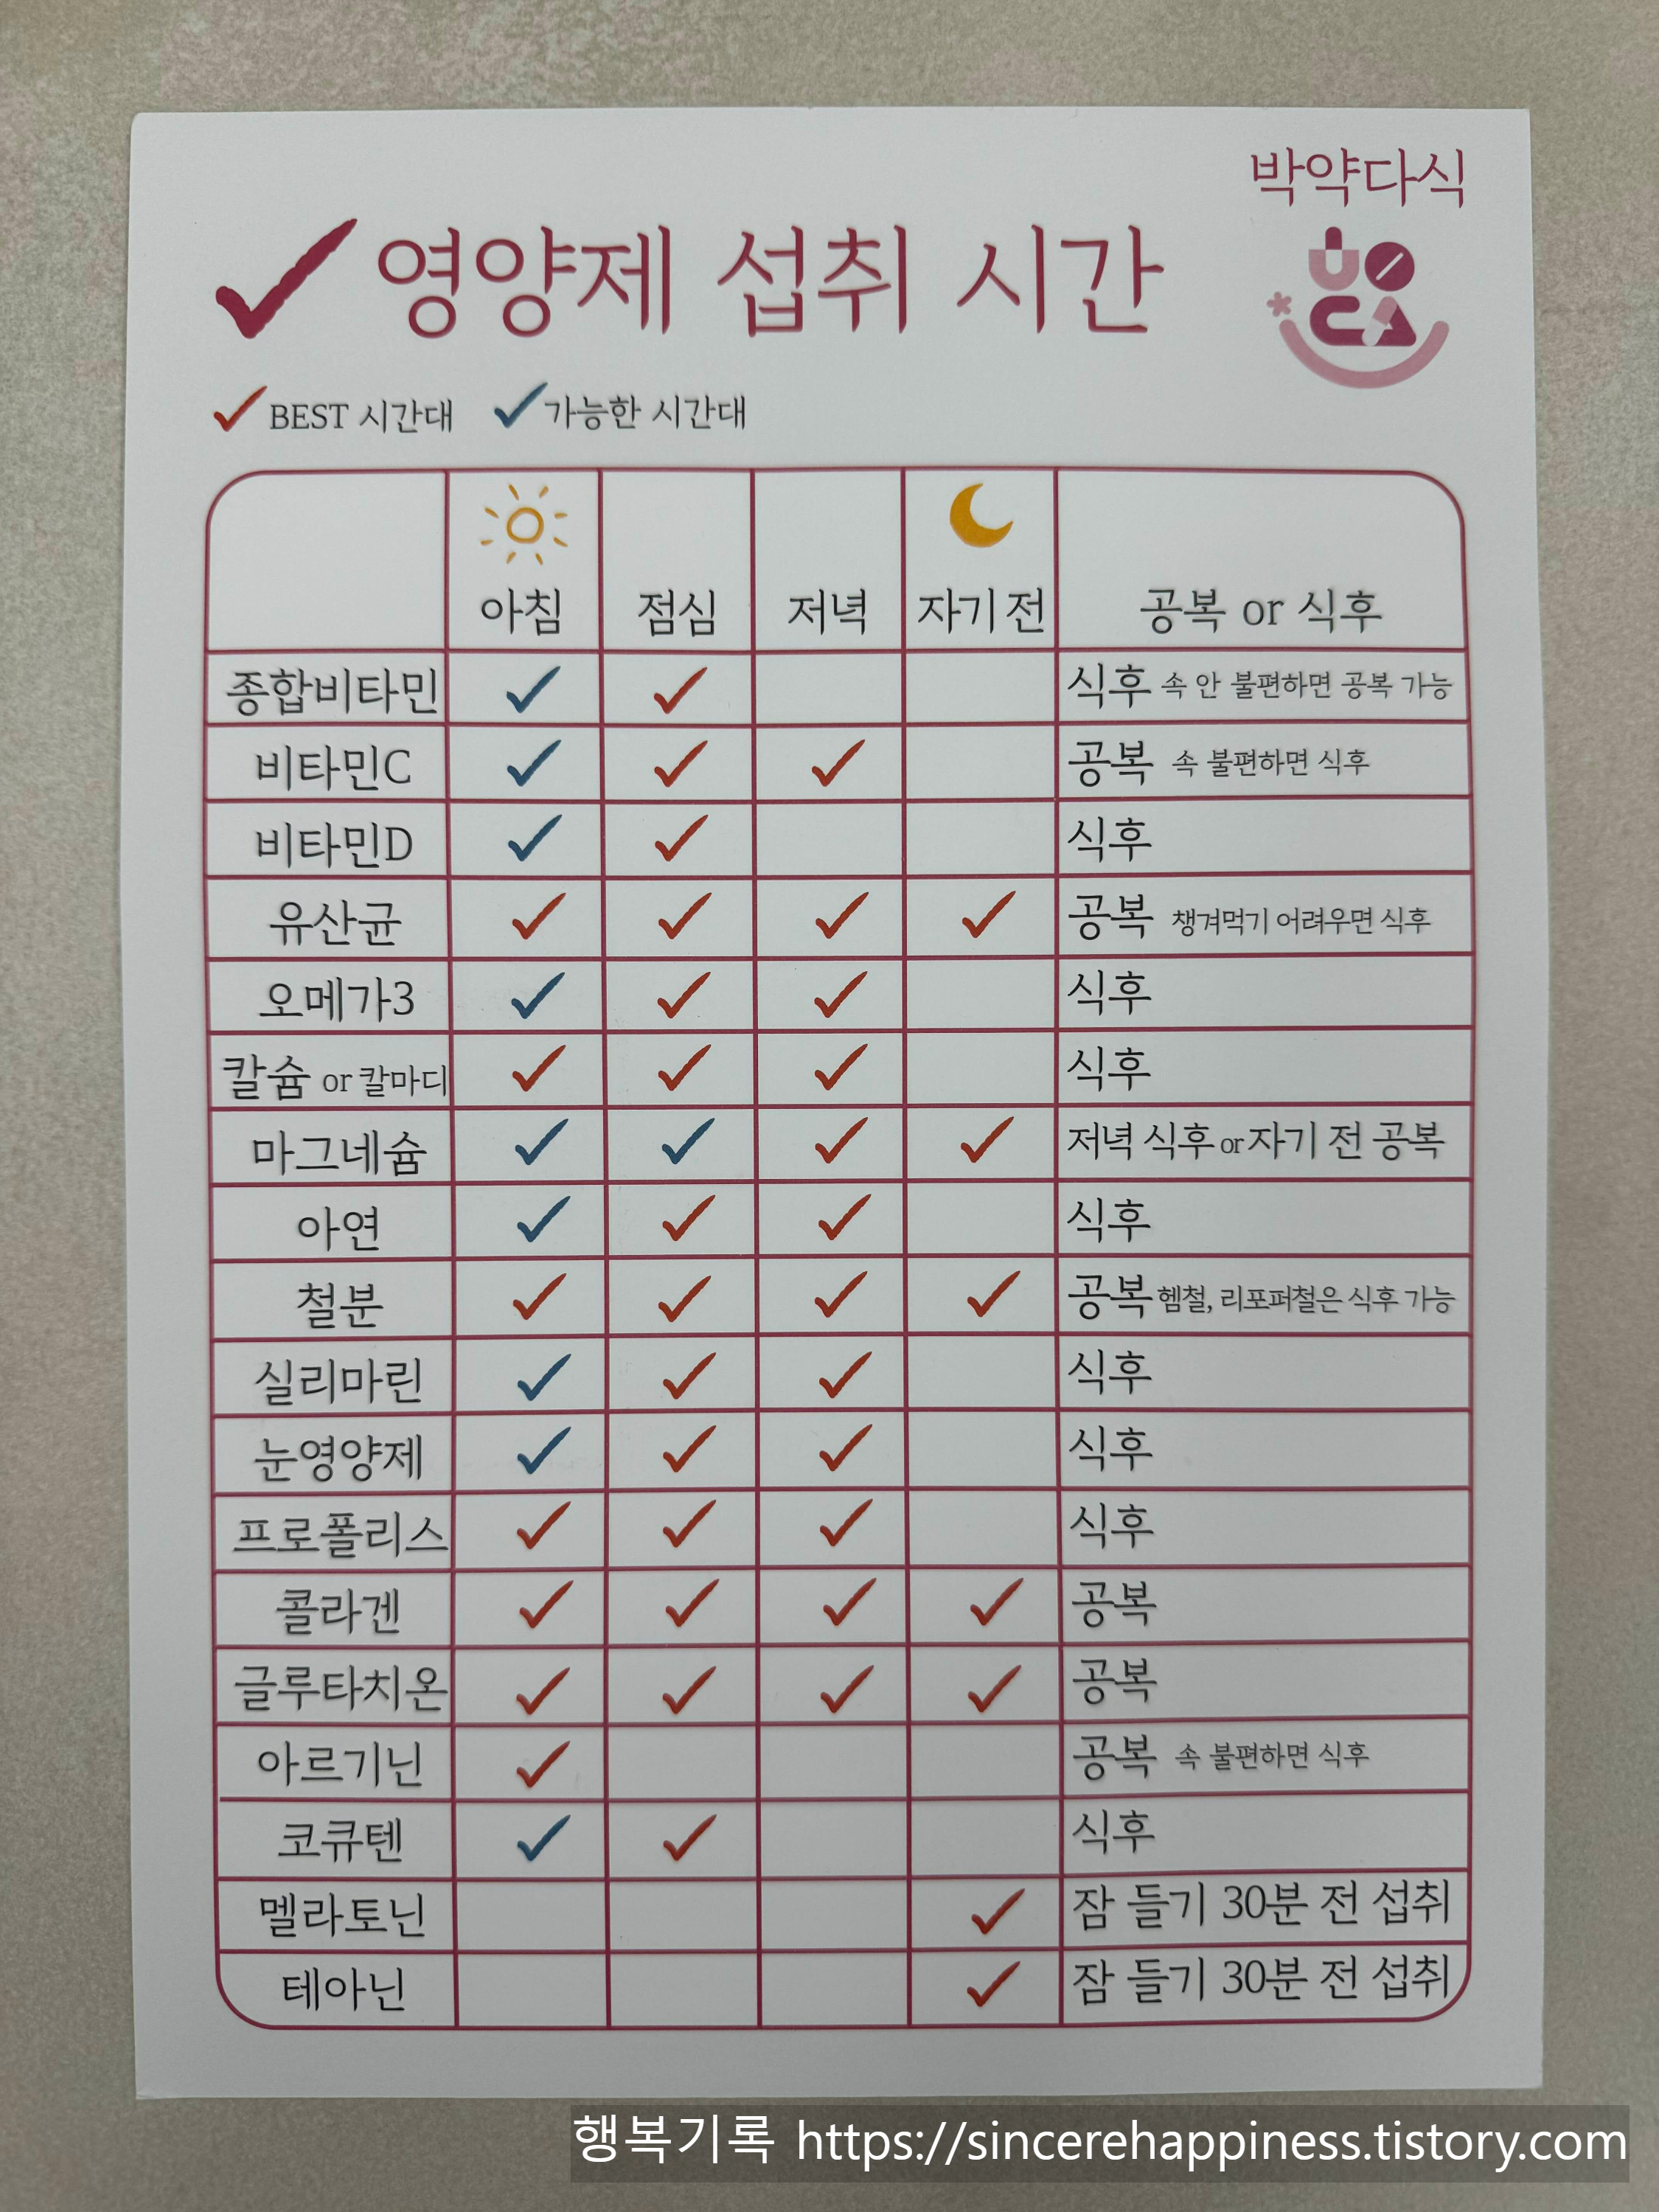 박약다식
✓ 영양제 섭취 시간
UOCA
✓ BEST 시간대 ✓ 가능한 시간대
아침 점심 저녁 자기 전 공복 or 식후
종합비타민 ✓ ✓ 식후 속 안 불편하면 공복 가능
비타민C ✓ ✓ ✓ 공복 속 불편하면 식후
비타민D ✓ ✓ 식후
유산균 ✓ ✓ ✓ ✓ 공복 챙겨먹기 어려우면 식후
오메가3 ✓ ✓ ✓ 식후
칼슘 or 칼마디 ✓ ✓ ✓ 식후
마그네슘 ✓ ✓ ✓ ✓ 저녁 식후 or 자기 전 공복
아연 ✓ ✓ ✓ 식후
철분 ✓ ✓ ✓ ✓ 공복 헴철, 리포퍼철은 식후 가능
실리마린 ✓ ✓ ✓ 식후
눈영양제 ✓ ✓ ✓ 식후
프로폴리스 ✓ ✓ ✓ 식후
콜라겐 ✓ ✓ ✓ ✓ 공복
글루타치온 ✓ ✓ ✓ ✓ 공복
아르기닌 ✓ 공복 속 불편하면 식후
코큐텐 ✓ ✓ 식후
멜라토닌 ✓ 잠 들기 30분 전 섭취
테아닌 ✓ 잠 들기 30분 전 섭취
행복기록 https://sincerehappiness.tistory.com